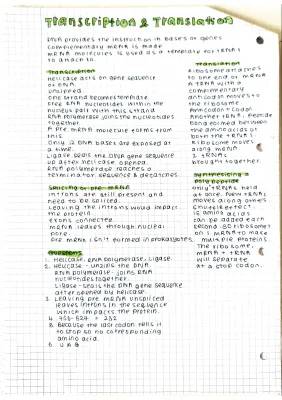 Transcription & Translation
DNA provides the instruction in bases or genes
complementary mRNA is made
mRNA molecules is used as a template for tRNA
to attach to.
Transcription
Helicase acts on gene sequence
of DNA.
unwined
one strand becomes template
free RNA nucleotides within the
nucleus pair with this strand
RNA polymerase joins the nucleotides
together
A pre mRNA molecule forms from
this.
Only 12 DNA bases are exposed at
a time.
Ligase seals the DNA gene sequence
up after helicase opened
RNA polymerase reaches a
terminator sequence & detatches.
Splicing of pre mRNA
introns are still present and
need to be spliced.
Leaving the introns would impact
the protein
exons connected.
mRNA leaves through nuclear
pore.
pre mRNA isn't formed in prokaryotes
Translation
Ribosome attaches
to one end of mRNA
A tRNA with a
complimentary
anticodon moves to
the ribosome
Another tRNA. Peptide
bond formed between
the amino acids of
both the tRNA's
Ribosome moves
along mRNA
2 tRNAs
brought together.
Synthesising a
polypeptide
only tRNA is held
at once. New tRNA
moves along others
15 amino acids
can be added each
second. 50 ribosomes
on 1 mRNA to make
multiple proteins
The ribosome,
mRNA + tRNA
will separate
at a stop codon.
Questions
1. Helicase, RNA polymerase, Ligase.
2. Helicase - unzips the DNA.
RNA polymerase - joins RNA
nucleotides together.
Ligase - seals the DNA gene sequence
after opened by helicase
3. Leaving pre mRNA unspliced
leaves introns in the sequence
which impacts the protein.
5. Because the last codon tells it
to stop so no corresponding
amino acid.
6. UAG